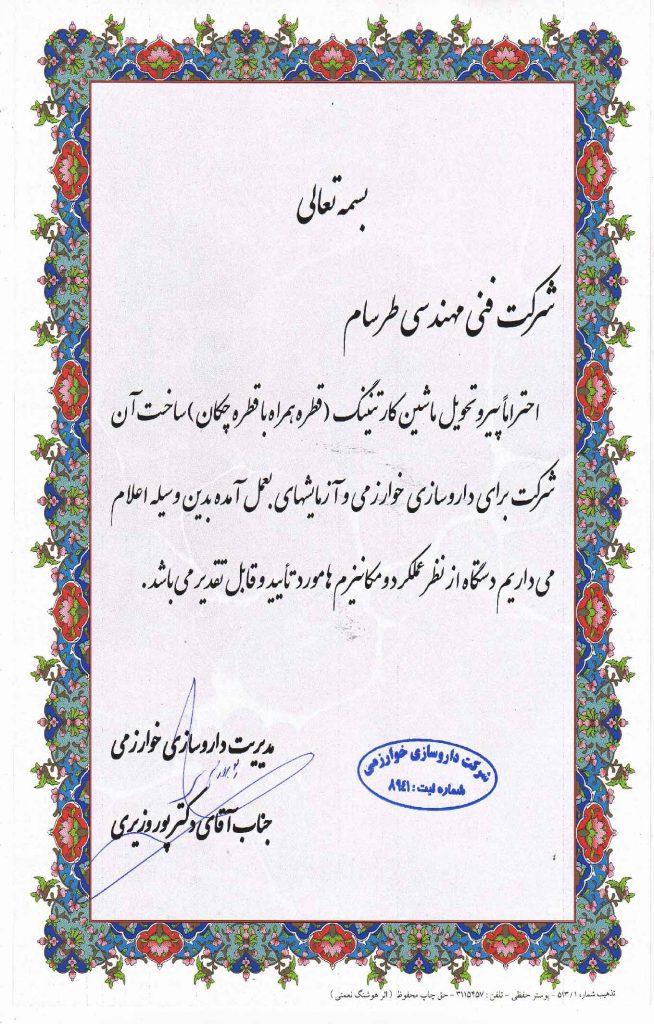 بسمه تعالی
شرکت فنی مهندسی طرسام
احتراماً پیرو تحویل ماشین کارتنینگ (قطره همراه با قطره چکان) ساخت آن
شرکت برای داروسازی خوارزمی و آزمایشهای بعمل آمده بدین وسیله اعلام
می داریم دستگاه از نظر عملکرد و مکانیزم ها مورد تأیید و قابل تقدیر می باشد.
شرکت داروسازی خوارزمی
شماره ثبت: ۸۹۴۱
مدیریت داروسازی خوارزمی
جناب آقای دکتر پوروزیری
تذهیب شماره ۵۱۳/۱ - پوستر حفظی - تلفن: ۳۱۱۵۴۵۷ - حق چاپ محفوظ (اثر هوشنگ نعمتی)